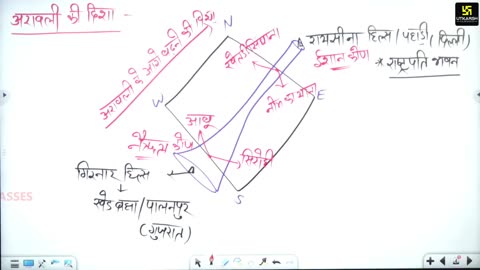 अरावली की दिशा -
अरावली के आगे बढ़ने की दिशा
N
रायसीना हिल्स / पहाड़ी (दिल्ली)
ईशान कोण
* राष्ट्रपति भवन
खेतड़ी सिंघाना
नीम का थाना
W
E
आबू
नैऋत्य कोण
सिरोही
गिरनार हिल्स
S
खेड़ब्रह्मा / पालनपुर
(गुजरात)
ASSES
UTKARSH